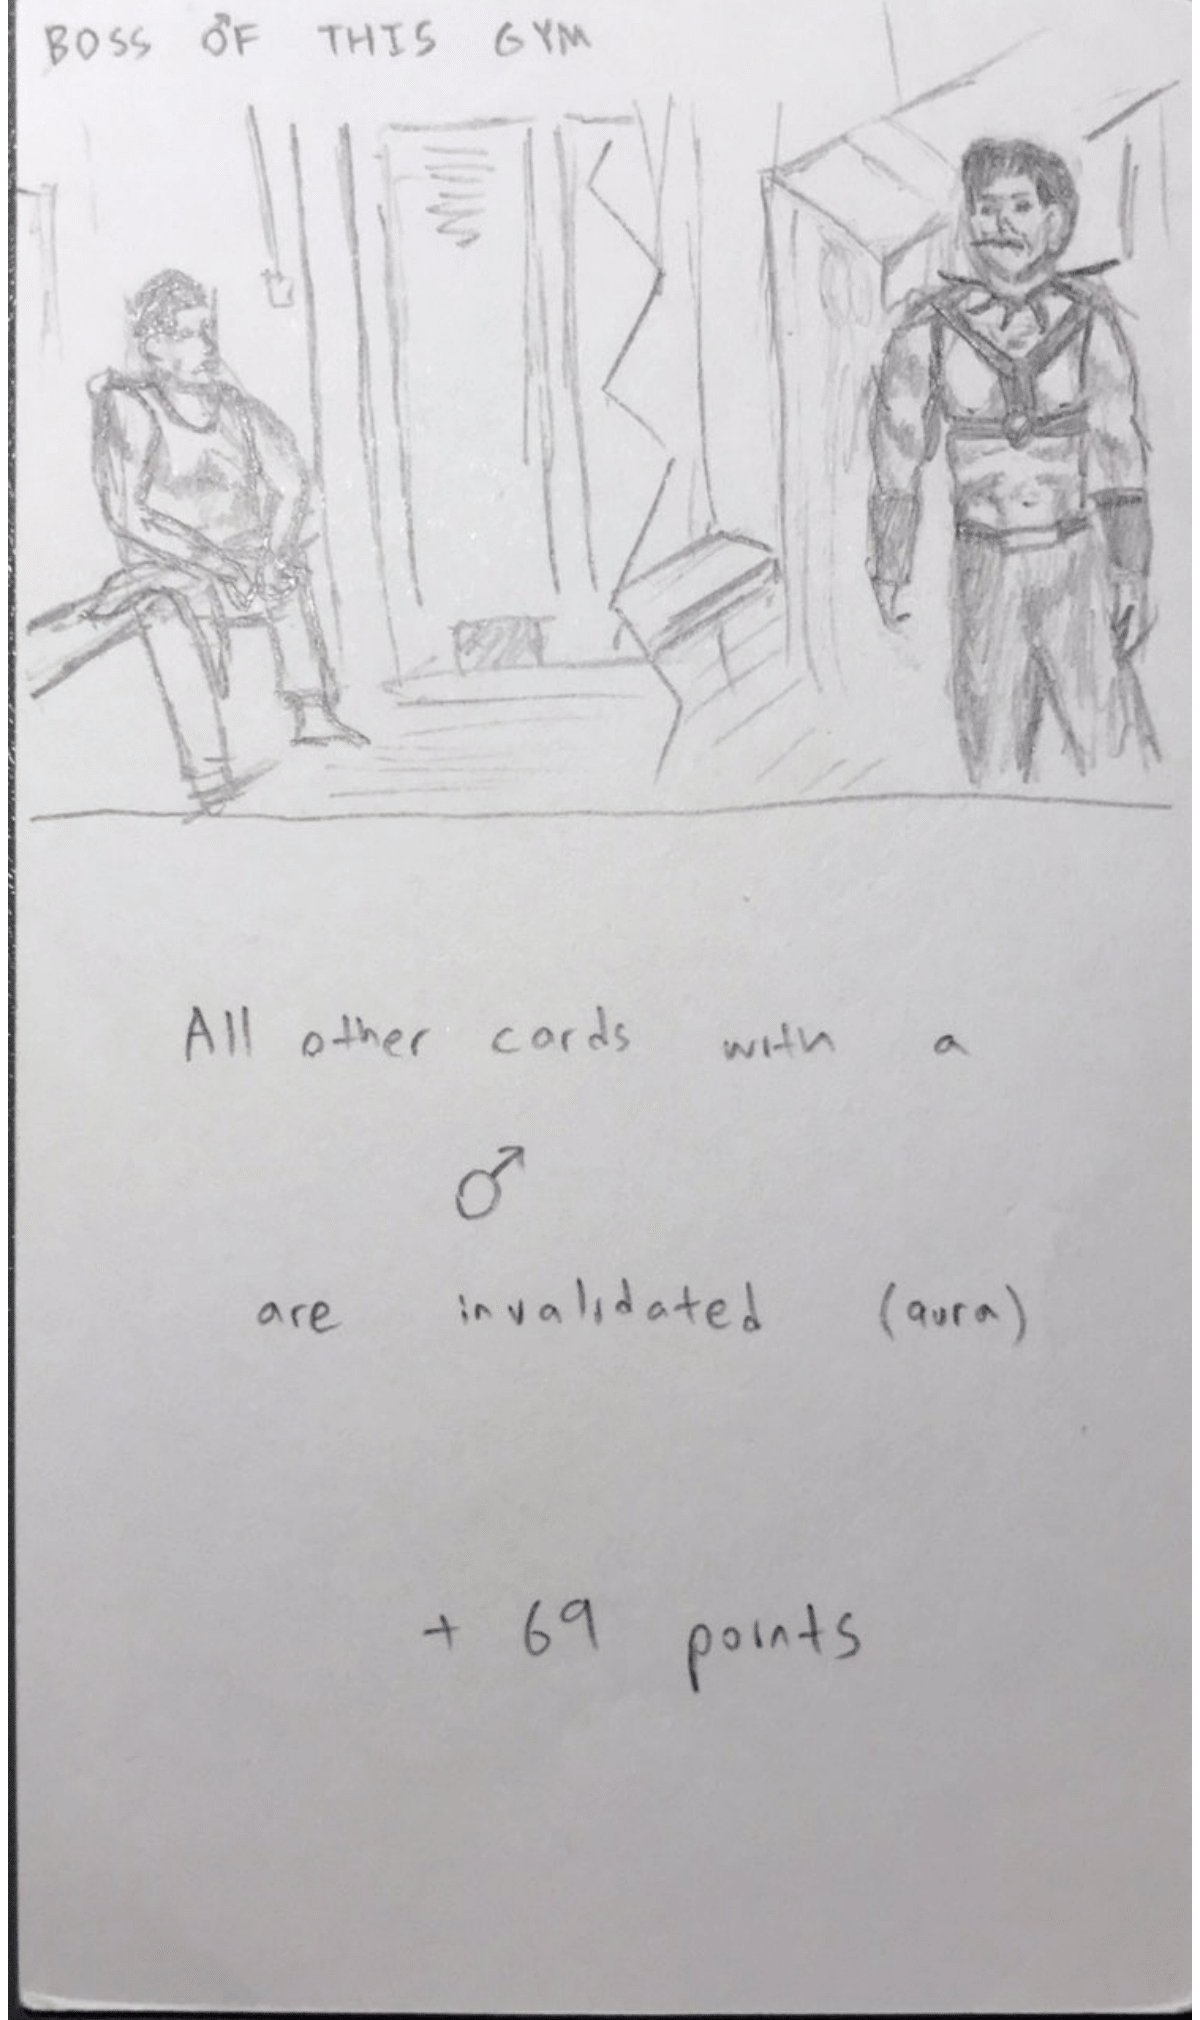 BOSS ♂F THIS GYM
All other cards with a
♂
are invalidated (aura)
+ 69 points